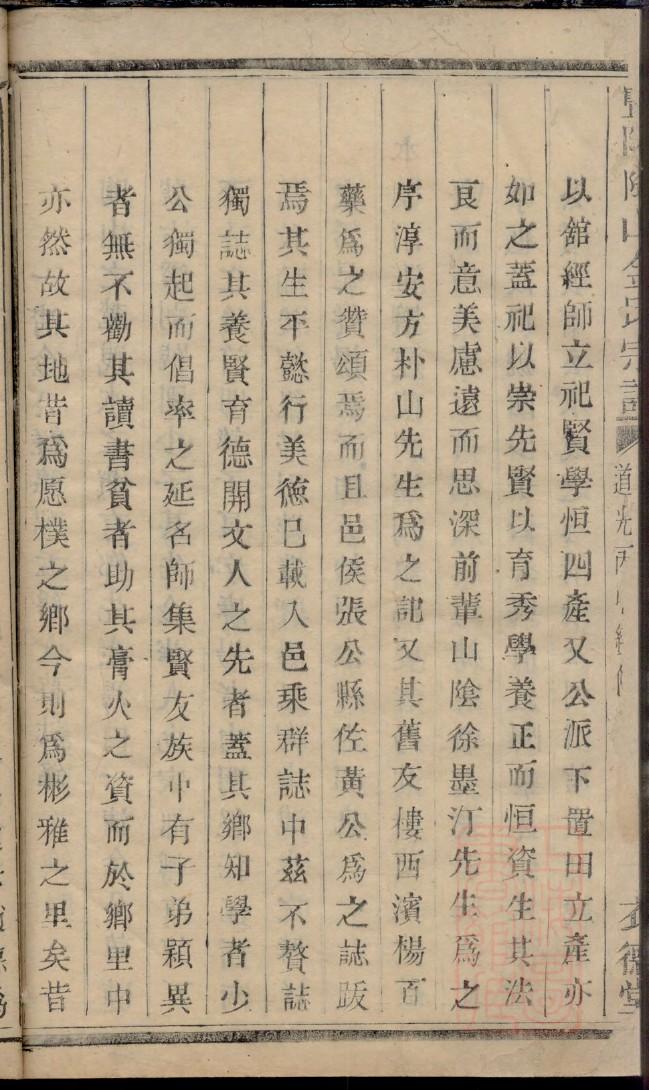 以舘經師立祀賢學恒四產又公派下置田立產亦
如之蓋祀以崇先賢以育秀學養正而恒資生其法
良而意美慮遠而思深前輩山陰徐墨汀先生爲之
序淳安方朴山先生爲之記又其舊友樓西濱楊百
藥爲之贊頌焉而且邑侯張公縣佐黃公爲之誌跋
焉其生平懿行美德已載入邑乘群誌中茲不贅誌
獨誌其養賢育德開文人之先者蓋其鄉知學者少
公獨起而倡率之延名師集賢友族中有子弟穎異
者無不勸其讀書貧者助其膏火之資而於鄉里中
亦然故其地昔爲愿樸之鄉今則爲彬雅之里矣昔
金氏宗譜
道光
堂